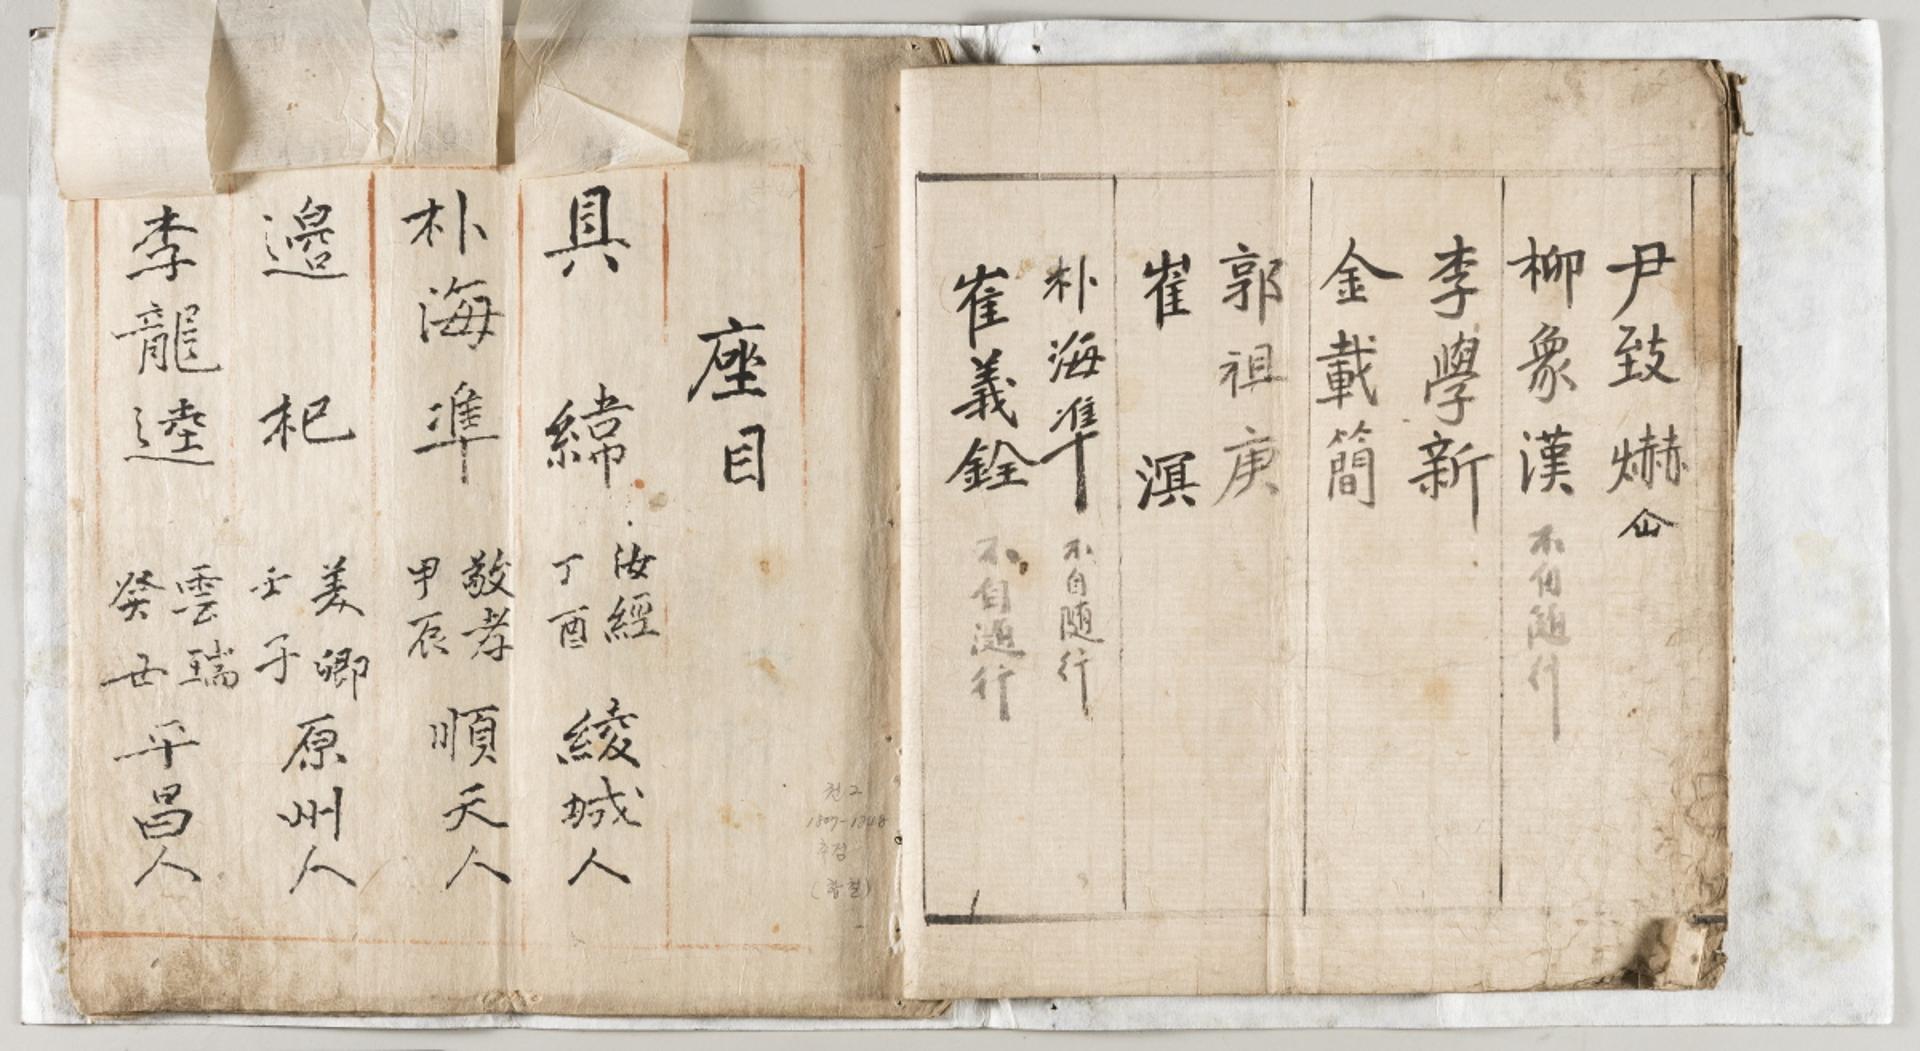 尹致爀
柳象漢 不自隨行
李學新
金載簡
郭祖庚
崔溟
朴海準 不自随行
崔義銓 不自隨行
座目
具緯 汝經 丁酉 綾城人
朴海準 敬孝 甲辰 順天人
邉杞 美卿 壬子 原州人
李龍逵 雲瑞 癸丑 平昌人
1807-1848
추정